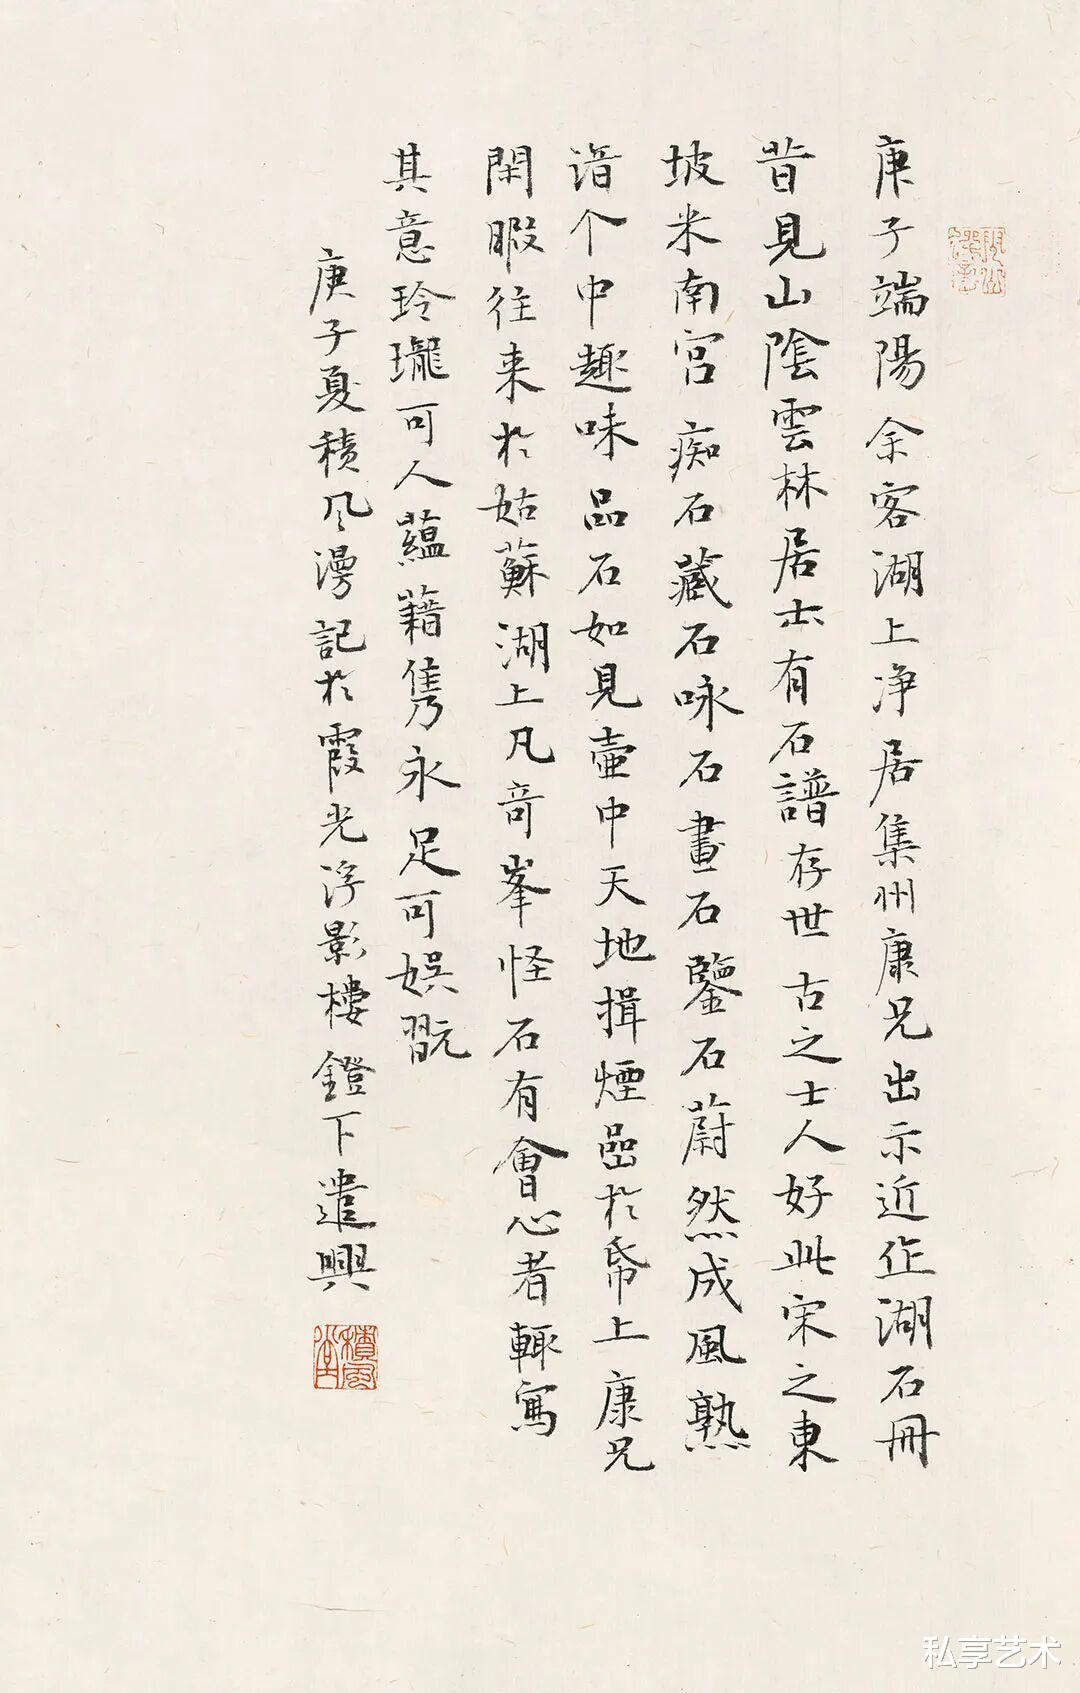 庚子端陽余客湖上净居集州康兄出示近作湖石冊
昔見山陰雲林居士有石譜存世古之士人好此宋之東
坡米南宮痴石藏石咏石畫石鑒石蔚然成風熟
諳个中趣味品石如見壷中天地揖煙嵒於帋上康兄
閑暇往来於姑蘇湖上凡奇峯怪石有會心者輒寫
其意玲瓏可人蘊藉雋永足可娛翫
庚子夏積风漫記於霞光浮影樓鐙下遣興
私享艺术